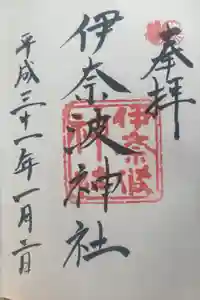 奉拝
伊奈波神社
伊奈波神社
平成三十一年一月二日